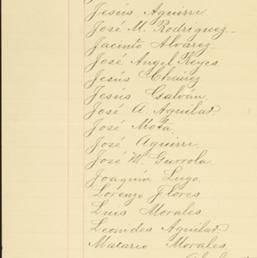 Jesús Aguirri
José M. Rodriguez
Jacinto Alvarez
José Angel Reyes
Jesús Chávez
Jesús Galván
José A. Aguilar
José Mota
José Aguirri
José W. Gurrola
Joaquín Lugo
Lorenzo Flores
Luis Morales
Leonides Aguilar
Macario Morales